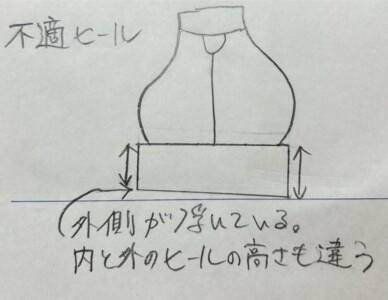 不適ヒール
外側が浮いている。
内と外のヒールの高さも違う